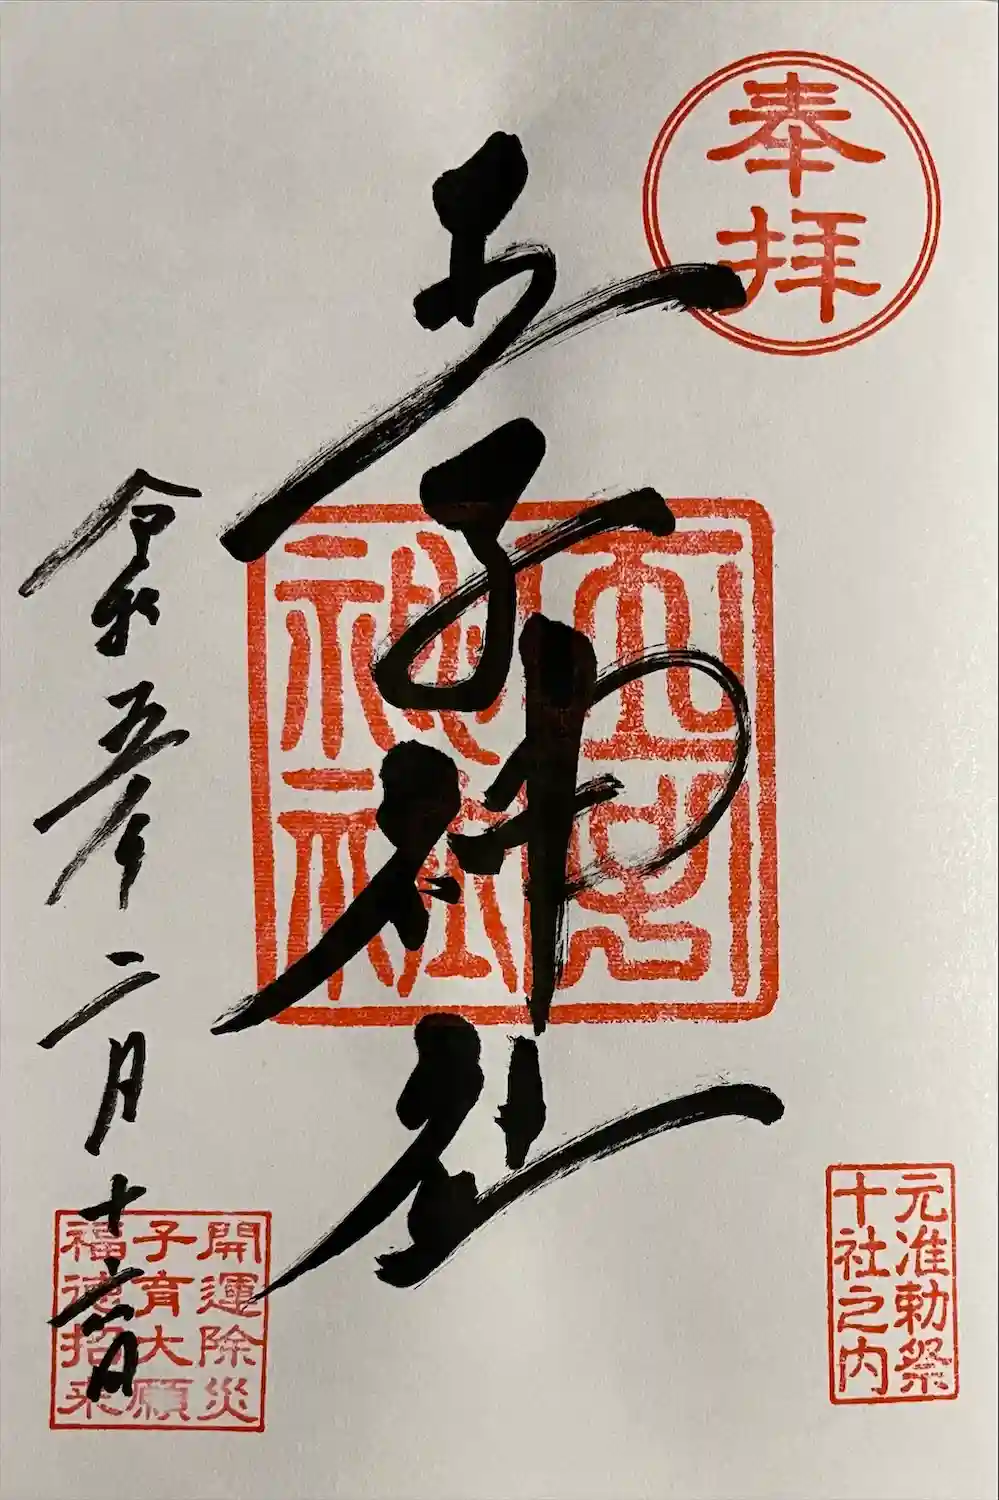 奉拝
元准勅祭
十社之内
王子神社
神社
令和五年二月十六日
開運除災
子育大願
福徳招来